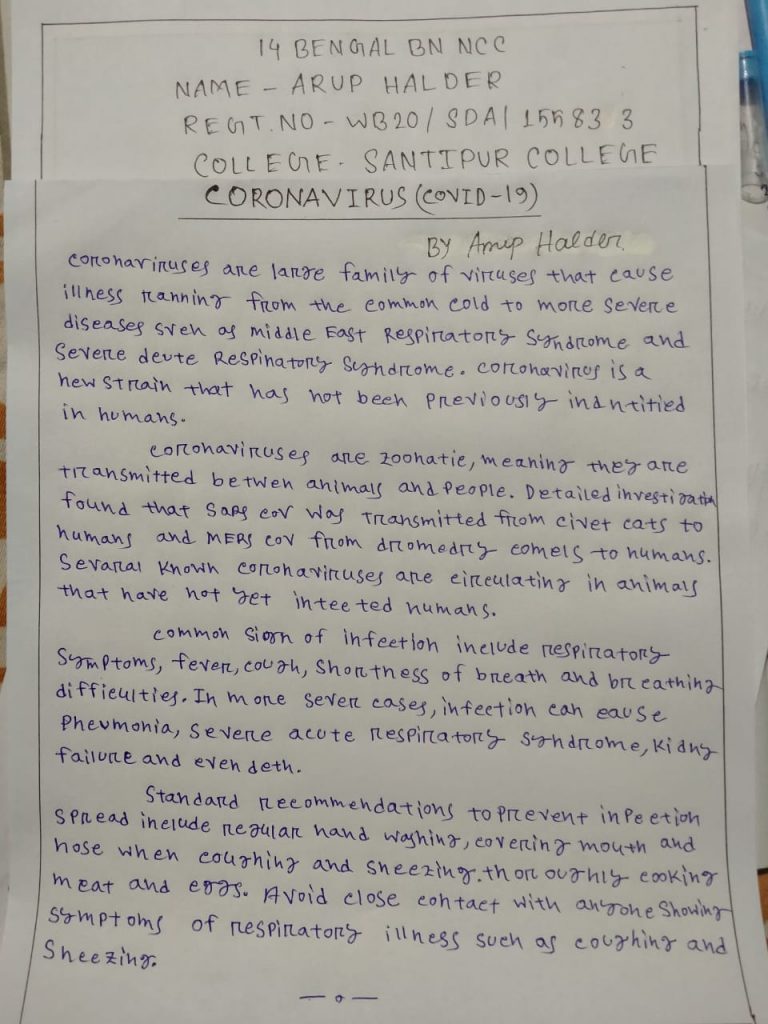 14 BENGAL BN NCC
NAME - ARUP HALDER
REGT.NO - WB20/SDA/155833
COLLEGE. SANTIPUR COLLEGE
CORONAVIRUS (COVID-19)
BY Arup Halder.
coronaviruses are large family of viruses that cause
illness ranning from the common cold to more severe
diseases sveh as middle East Respiratory Syndrome and
Severe deute Respiratory Syndrome. coronavirus is a
new strain that has not been previously indntitied
in humans.
coronaviruses are zoonatie, meaning they are
transmitted betwen animals and people. Detailed investigation
found that SARS cov was transmitted from civet cats to
humans and MERS cov from dromedry comels to humans.
Sevaral known coronaviruses are circulating in animals
that have not yet inteeted humans.
common sign of infection include respiratory
symptoms, fever, cough, shortness of breath and breathing
difficulties. In more sever cases, infection can cause
Pneumonia, severe acute respiratory syndrome, kidny
failure and even deth.
Standard recommendations to prevent inpeetion
spread include regular hand washing, covering mouth and
nose when coughing and sneezing. thoroughly cooking
meat and eggs. Avoid close contact with anyone showing
symptoms of respiratory illness such as coughing and
Sneezing.